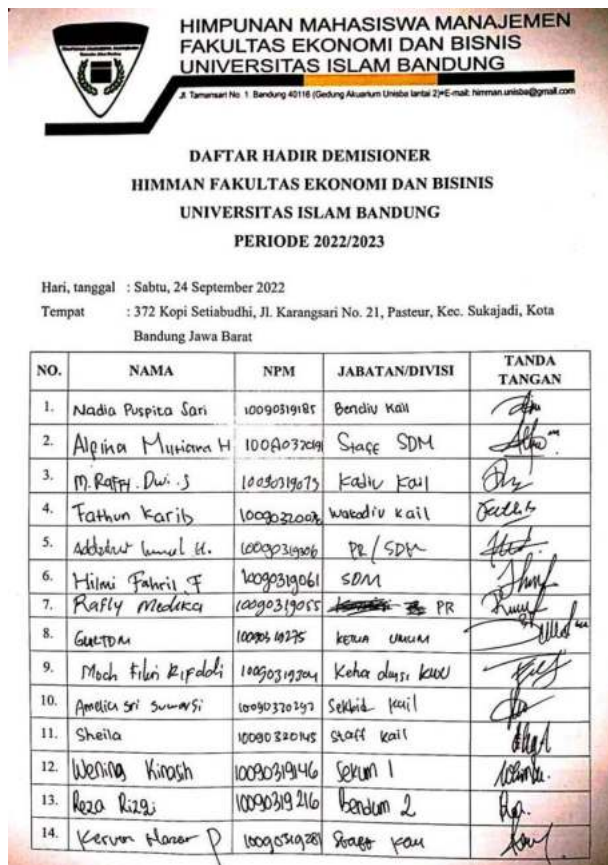 HIMPUNAN MAHASISWA MANAJEMEN
FAKULTAS EKONOMI DAN BISNIS
UNIVERSITAS ISLAM BANDUNG
Jl. Tamansari No. 1 Bandung 40116 (Gedung Akuarium Unisba lantai 2)•E-mail: himman.unisba@gmail.com
DAFTAR HADIR DEMISIONER
HIMMAN FAKULTAS EKONOMI DAN BISINIS
UNIVERSITAS ISLAM BANDUNG
PERIODE 2022/2023
Hari, tanggal : Sabtu, 24 September 2022
Tempat : 372 Kopi Setiabudhi, Jl. Karangsari No. 21, Pasteur, Kec. Sukajadi, Kota
Bandung Jawa Barat
NO. NAMA NPM JABATAN/DIVISI TANDA TANGAN
1. Nadia Puspita Sari 10090319185 Bendiv Kail
2. Alpina H Staff SDM
3. M. Raffy. Dwi. S 10090319073 Kadiv Kail
4. Fathun Karib Wakadiv Kail
5. H. 10090319306 PR/SDM
6. Hilmi Fahril F 10090319061 SDM
7. Rafly Medika 10090319055 PR
8. 10090319275 KETUA UMUM
9. Moch Fikri Rifaldi 10090319304 Ketua
10. Amelia Sri 10090320297 Sekbid Kail
11. Sheila 10090320145 Staff Kail
12. Wening Kinasih 10090319146 Sekum 1
13. Reza Rizqi 10090319216 Bendum 2
14. Kervin P 10090319281 Staff